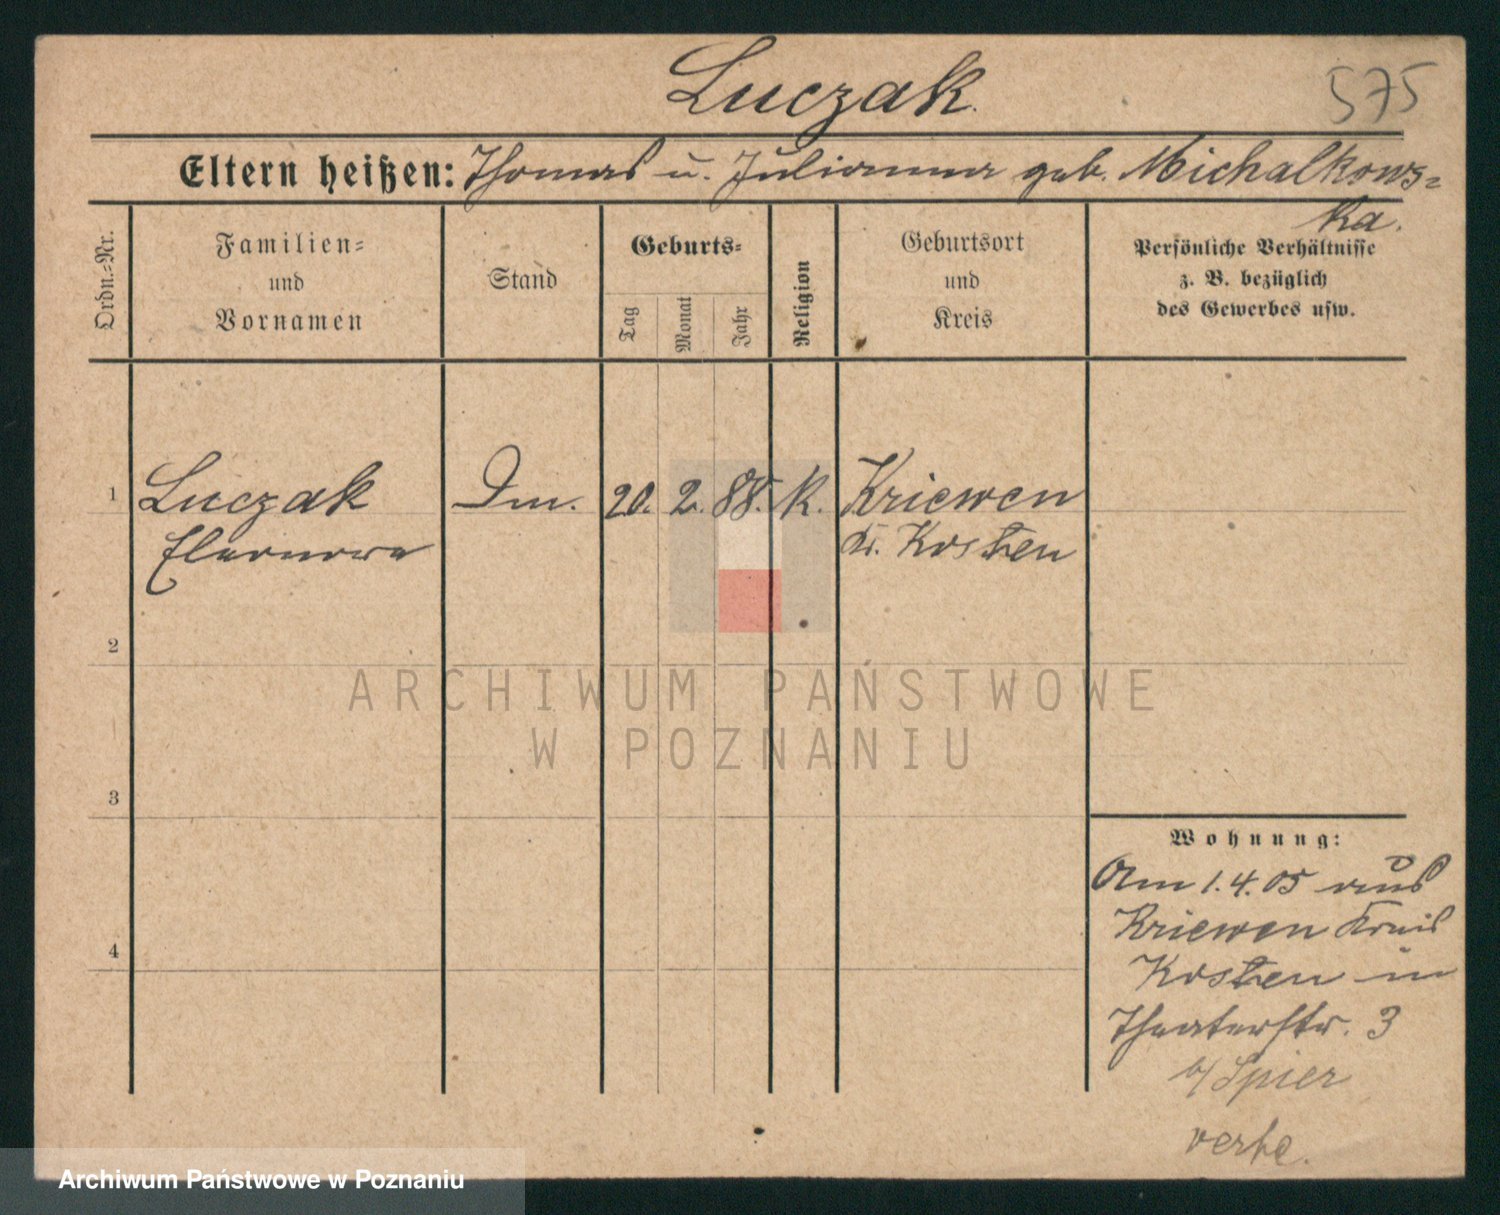 Luczak.
575
Eltern heißen: Thomas u. Julianna geb. Michalkows=
ka.
Ordn.=Nr.
Familien=
und
Vornamen
Stand
Geburts=
Tag
Monat
Jahr
Religion
Geburtsort
und
Kreis
Persönliche Verhältnisse
z. B. bezüglich
des Gewerbes usw.
1 Luczak 20. 2. 88. K. Kriewen
Eleonore Kr. Kosten
2
3
4
Wohnung:
Am 1.4.05 aus
Kriewen Kreis
Kosten in
Theaterstr. 3
b/ Spier
ARCHIWUM PAŃSTWOWE
W POZNANIU
Archiwum Państwowe w Poznaniu